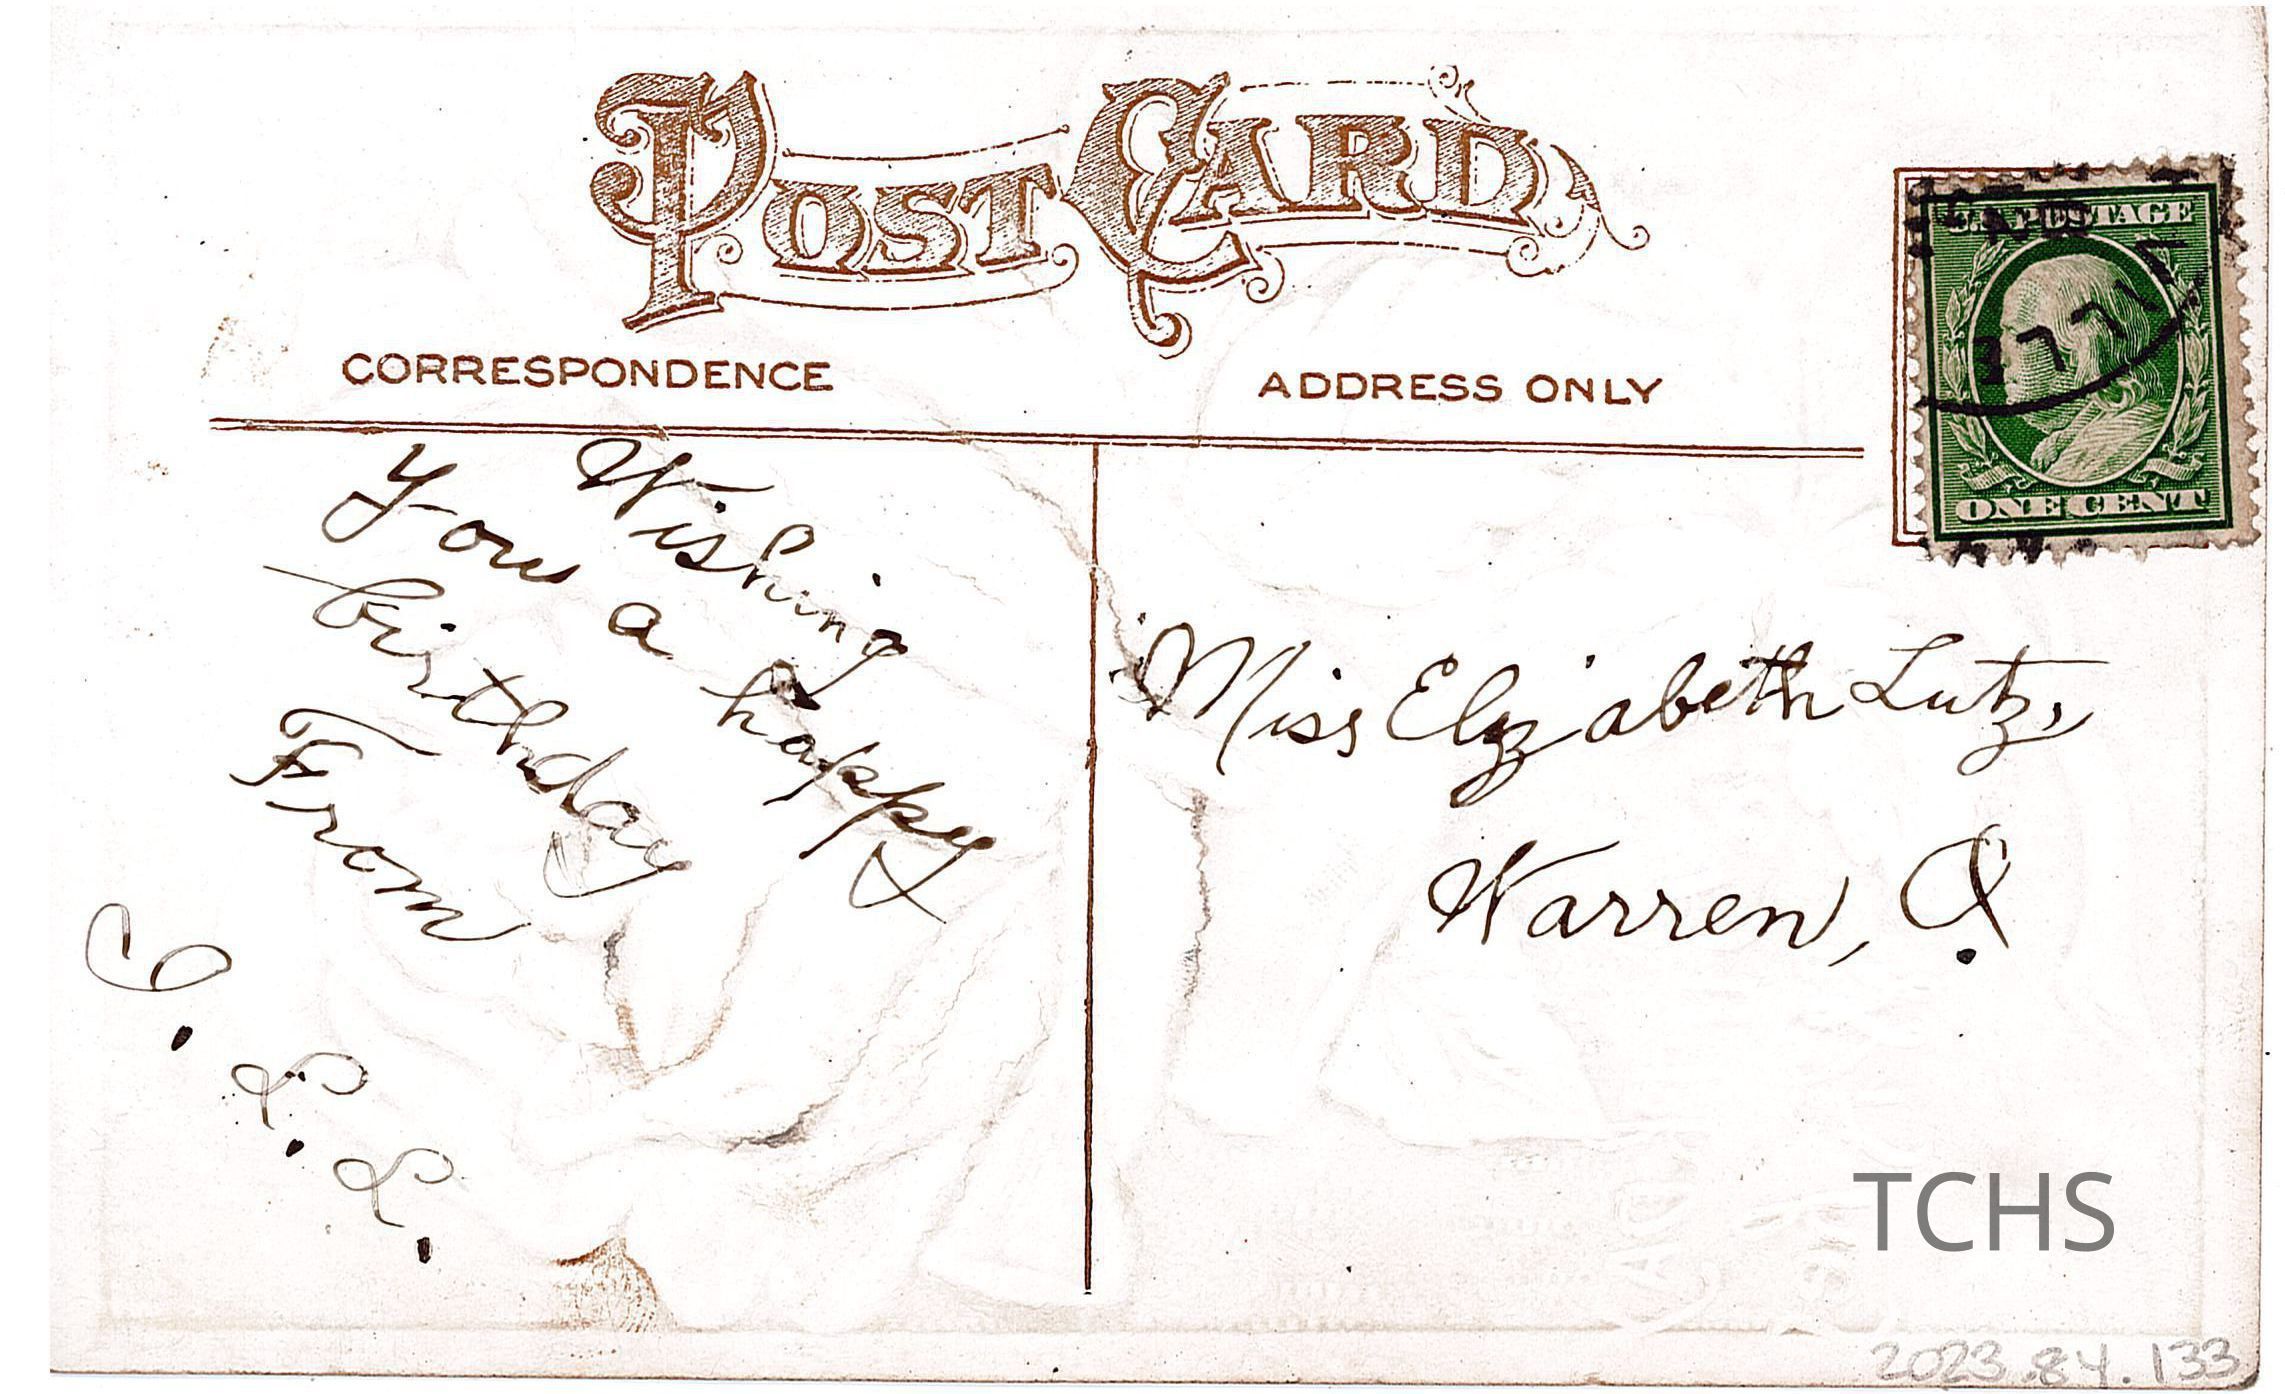 POST CARD
CORRESPONDENCE
ADDRESS ONLY
U.S. POSTAGE
ONE CENT
Wishing
You a happy
birthday
From
L. L.
Miss Elizabeth Lutz,
Warren, O.
TCHS
2023.84.133